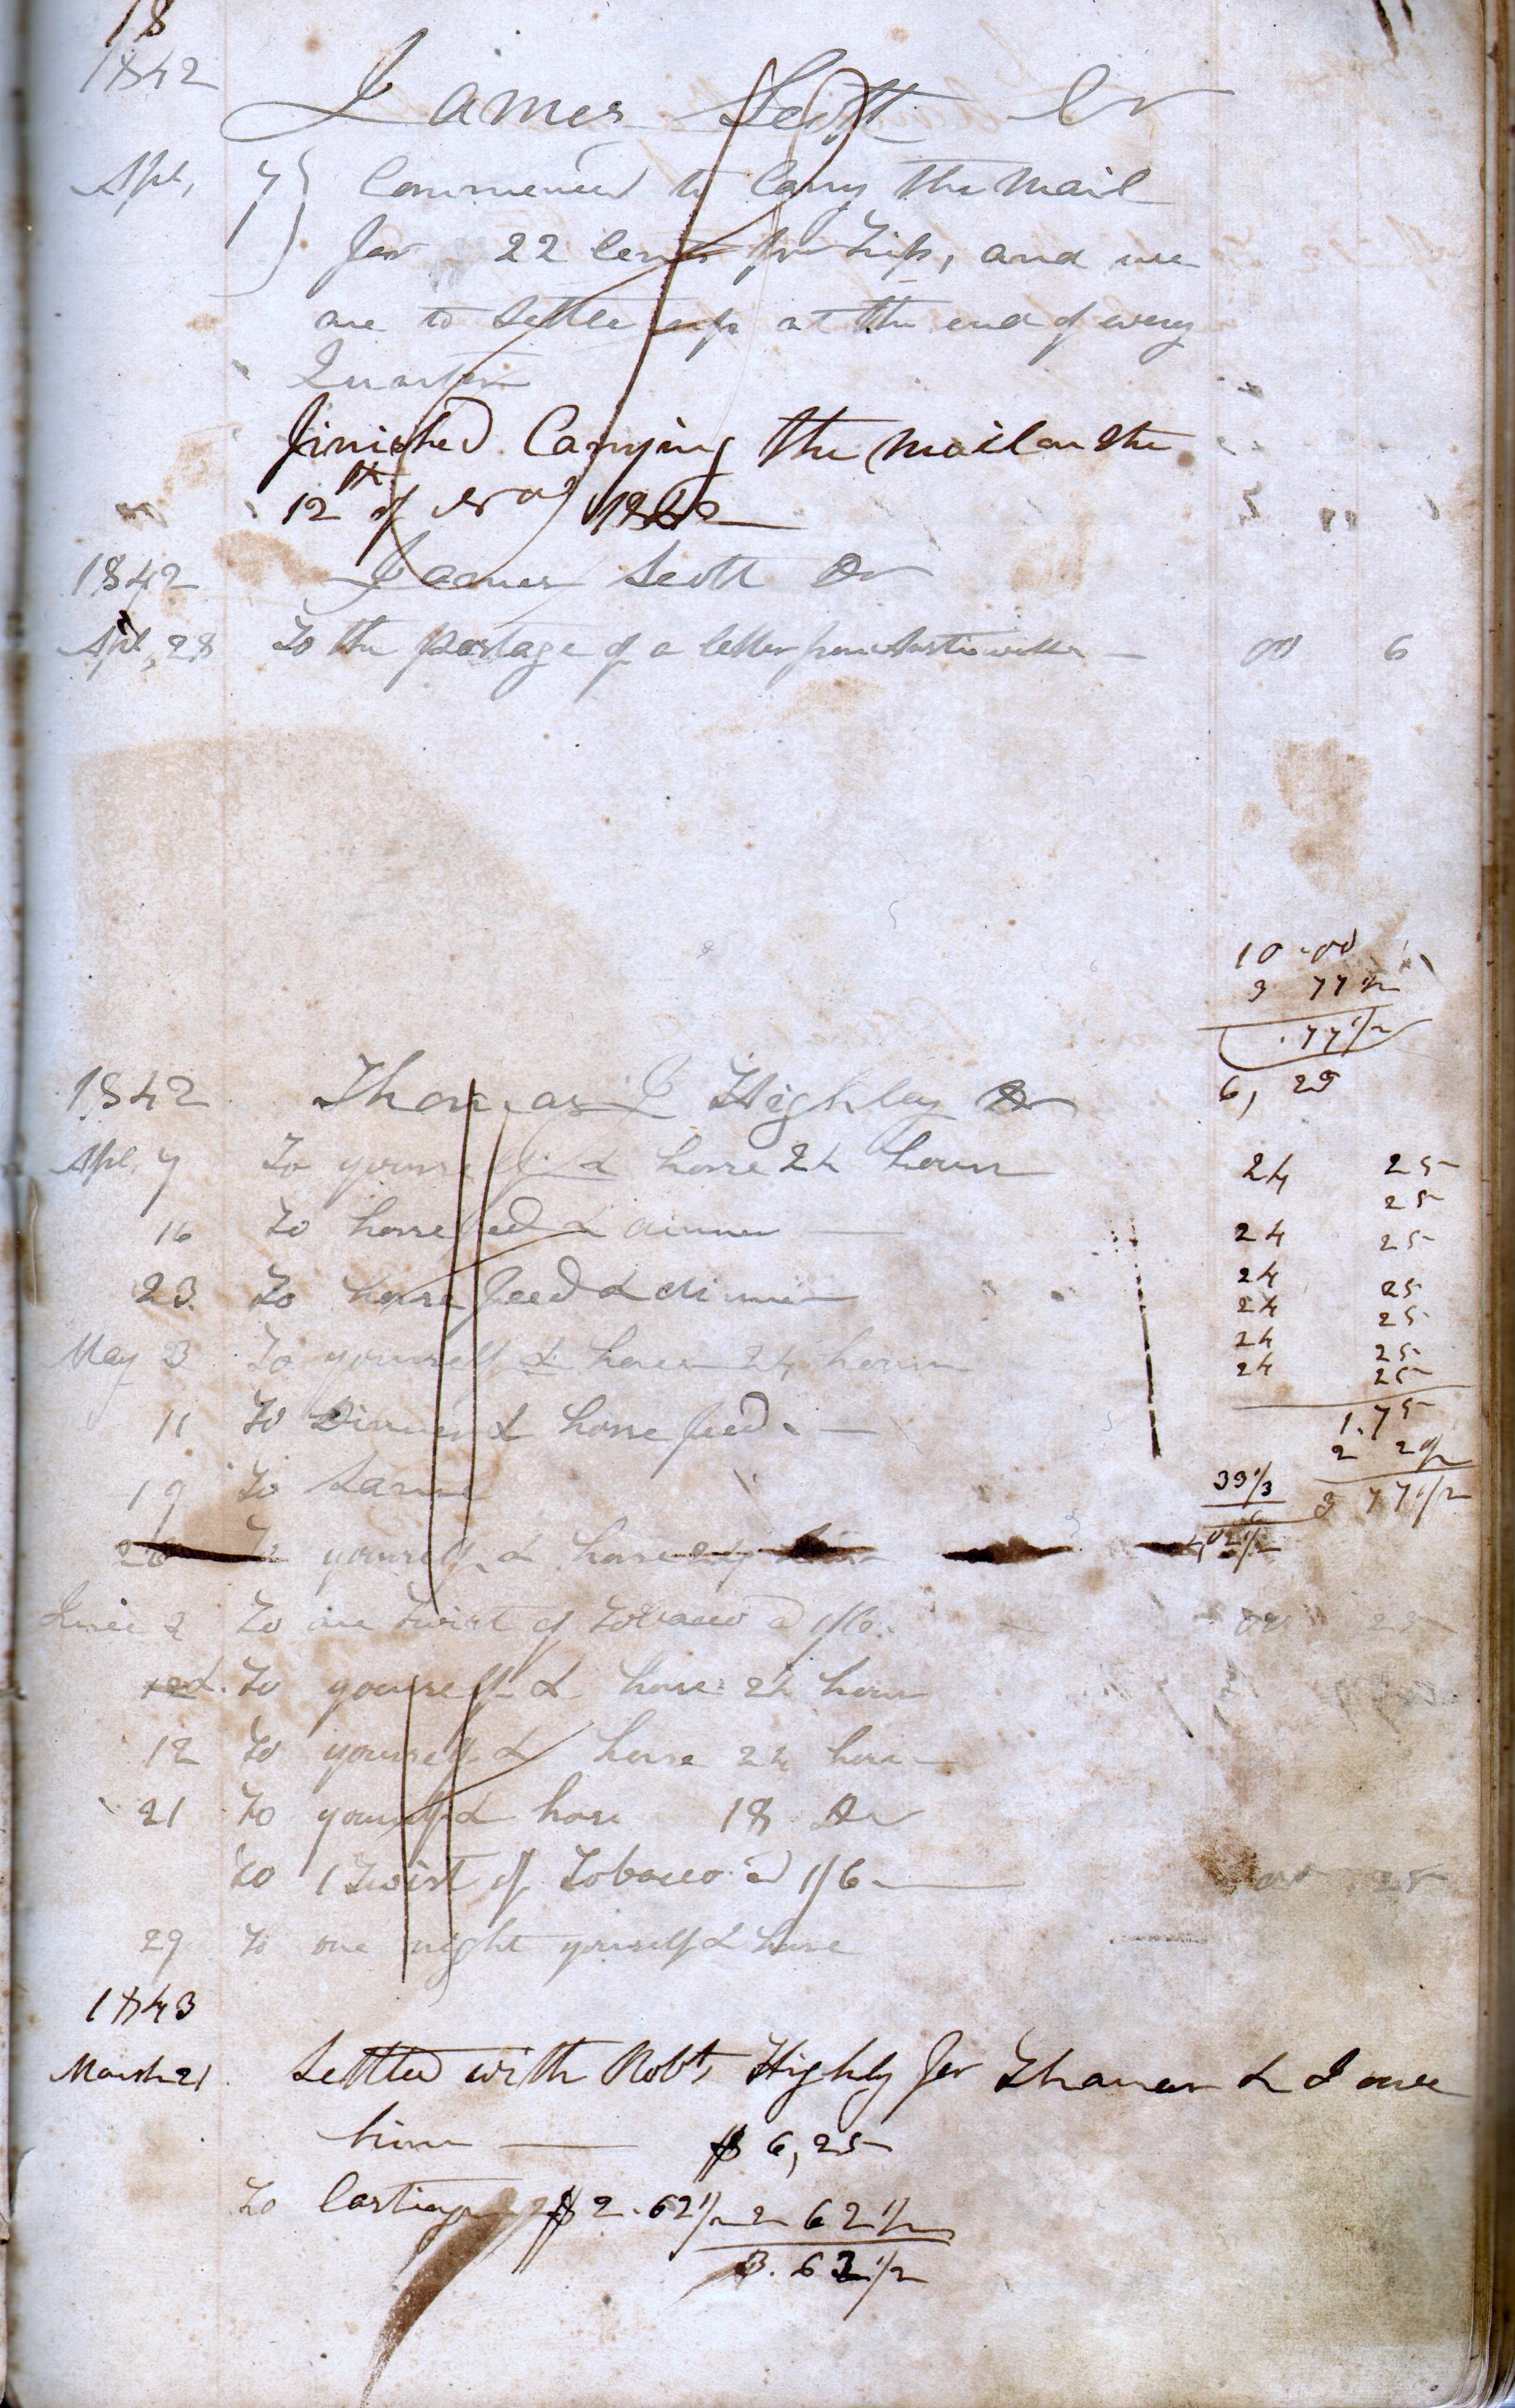 18
1842
James Scott Cr
Apl, 7 Commenced to Carry the Mail
for 22 Cents per Trip, and we
are to Settle up at the end of every
Quarter
finished Carrying the mail on the
12th of Nov 1842
1842 James Scott Dr
Apl, 28 To the postage of a letter from 00 6
10.00
3 77 1/2
.77 1/2
6, 25
1842 Thomas J Highley Dr
Apl, 7 To yourself & horse 24 hours 24 25
25
16 To horse feed & dinner 24 25
23 To horse feed & dinner 24 25
24 25
May 3 To yourself & horse 24 hours 24 25
24 25
11 To Dinner & horse feed. 1.75
2 2 1/2
19 To Same 33 1/3 3 77 1/2
26 To yourself & horse 2,02 1/2
June 2 To one twist of Tobacco @ 1/6. 00 25
To yourself & horse 24 hours
12 To yourself & horse 24 hour
21 To yourself & horse 18 Dr
To 1 Twist of Tobacco @ 1/6 00 25
29 To one night yourself & horse
1843
March 21 Settled with Robt, Highly for Thomas & I owe
him $ 6,25
To Castings $ 2.62 1/2 2 62 1/2
3.62 1/2